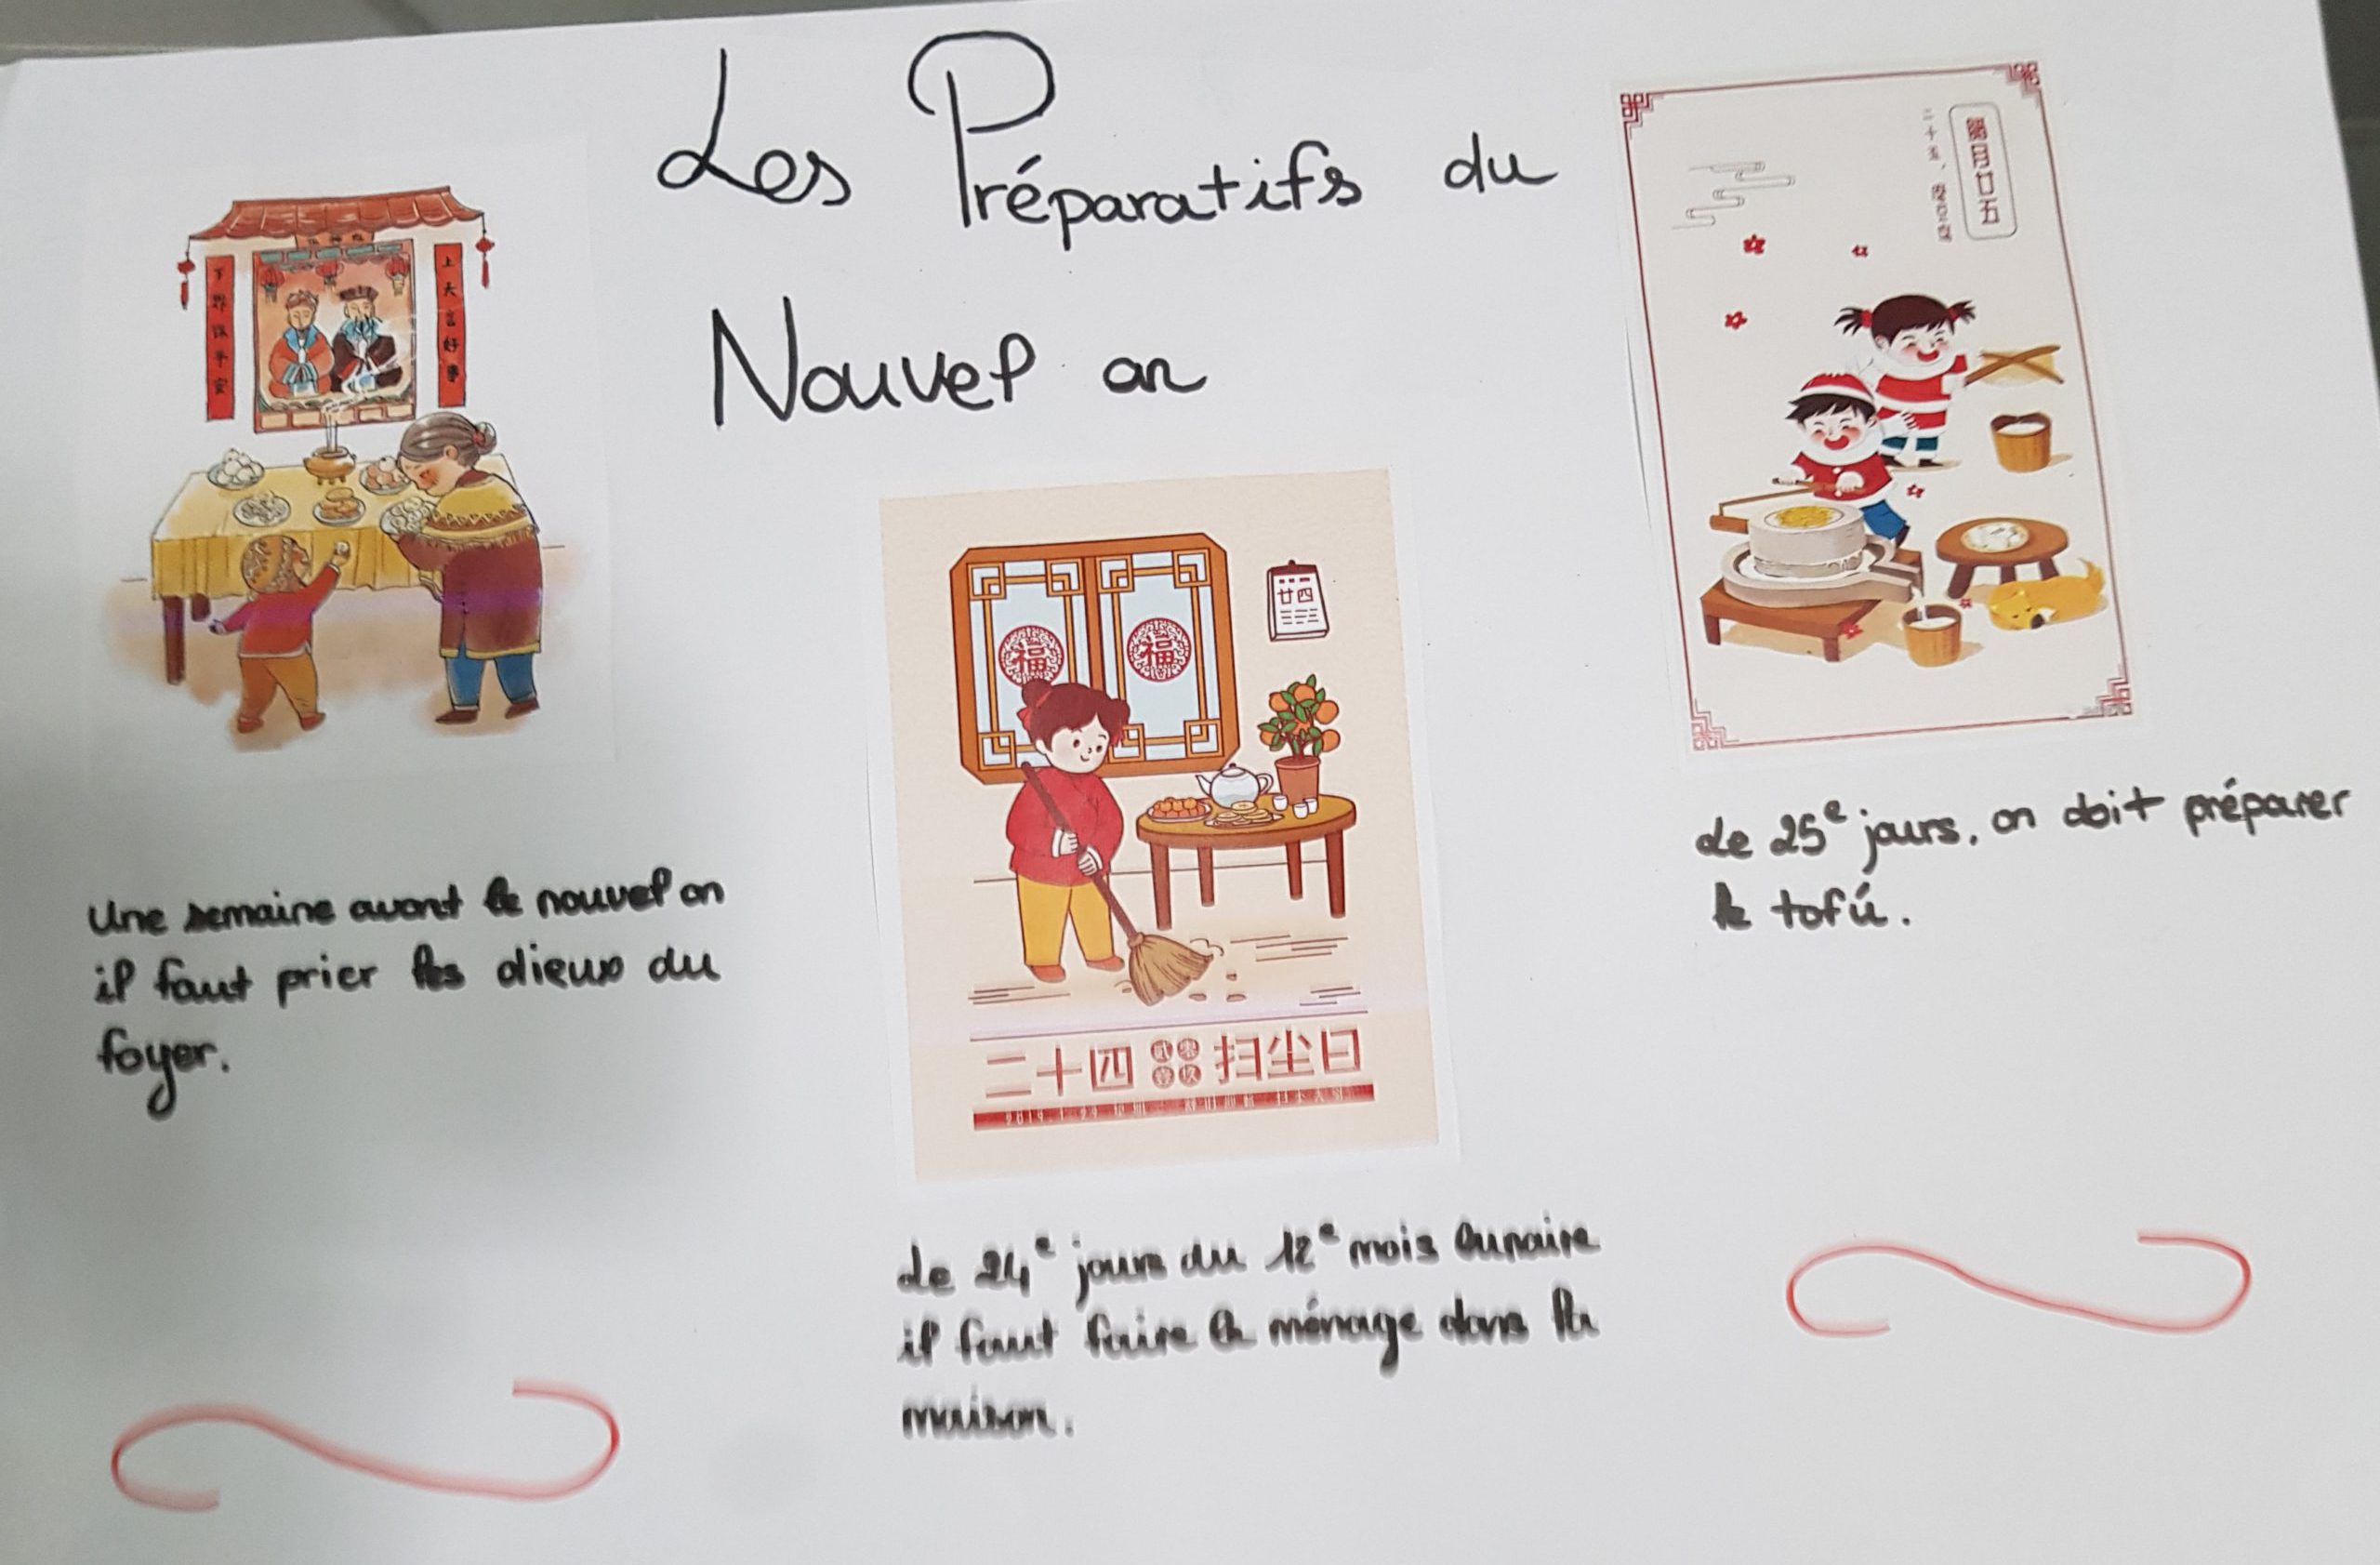 Les Préparatifs du
Nouvel an
上天言好事
下界保平安
臘月廿五
二十五、磨豆腐
福
福
廿四
Une semaine avant le nouvel an
il faut prier les dieux du
foyer.
二十四 貳零壹玖 扫尘日
Le 25e jours, on doit préparer
le tofú.
Le 24e jours du 12e mois lunaire
il faut faire le ménage dans la
maison.